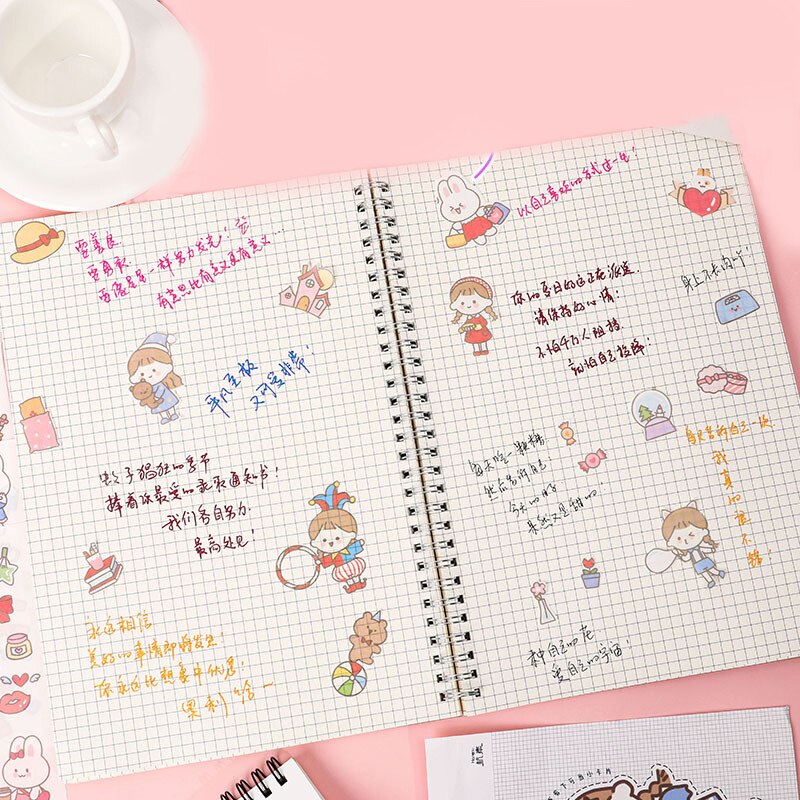 要善良
要勇敢
要像星星一样努力发光！
有意思比有意义更有意义...
平凡至极
又可爱非常！
蚊子猖狂的季节
捧着你最爱的录取通知书！
我们各自努力
最高处见！
永远相信
美好的事情即将发生！
你永远比想象中优秀！
奥利给~
以自己喜欢的方式过一生！
你的今日好运正在派送
请保持好心情！
不怕千万人阻挡
就怕自己投降！
身上不长肉吖！
每天吃一颗糖
然后告诉自己！
今天的日子
果然又是甜的
每天告诉自己一次
我真的很不错
种自己的花
爱自己的宇宙！